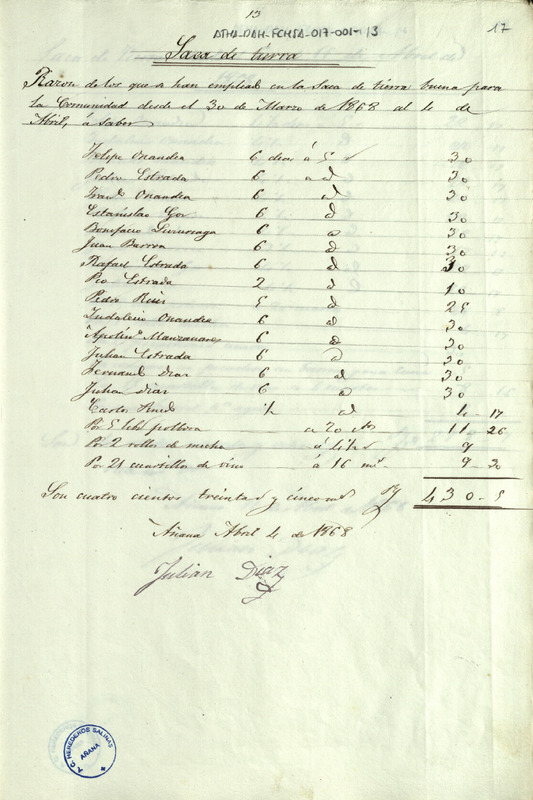 13
ATHA-DAH-FCHSA-017-001-13
17
Saca de tierra
Razon de los que se han empleado en la Saca de tierra buena para
la Comunidad desde el 30 de Marzo de 1868 al 4 de
Abril, á saber
Felipe Onandia 6 dias á 5 30
Pedro Estrada 6 a d 30
Franco Onandia 6 d 30
Estanislao 6 d 30
Bonifacio 6 d 30
Juan Barron 6 d 30
Rafael Estrada 6 d 30
Pio Estrada 2 d 10
Pedro Ruiz 5 d 25
Indalecio Onandia 6 d 30
Apolino Manzanares 6 d 30
Julian Estrada 6 d 30
Fernando Diaz 6 d 30
Julian Diaz 6 d 30
Carlos ½ d 17
Por 5 polbora a 20 11 26
Por 2 rollos de mecha á 9
Por 21 cuartillos de vino á 16 9 30
Son cuatro cientos treinta y cinco 430-5
Añana Abril 4 de 1868
Julian Diaz
HEREDEROS SALINAS
AÑANA